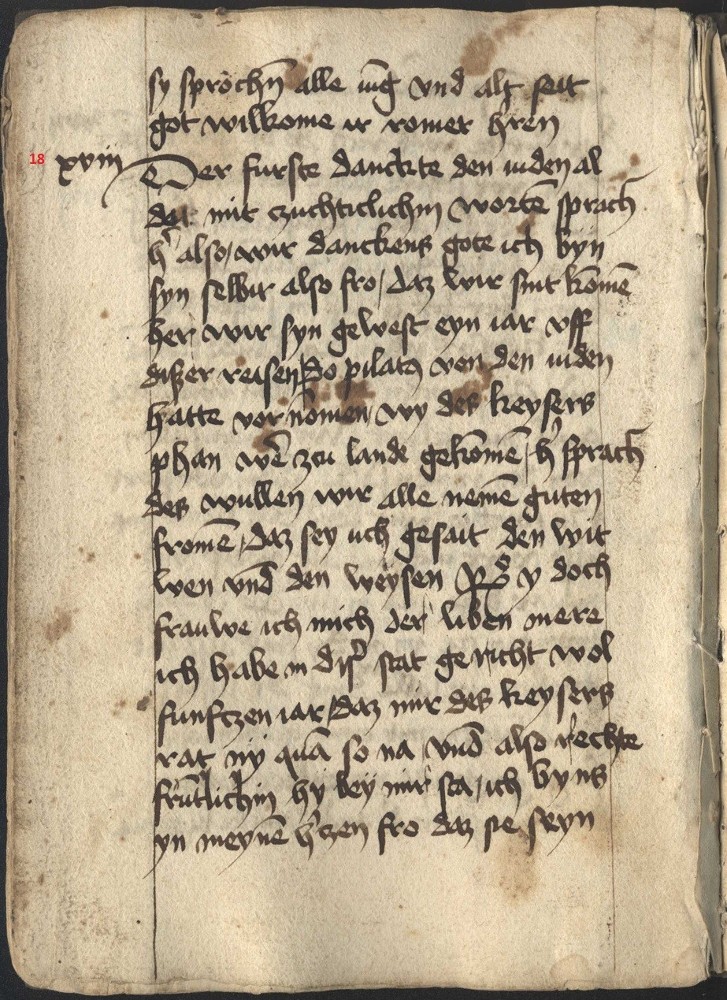 sy sprochn̄ alle iūg vnd alt seit
got wilkome ir romer h'ren
18 xviij Der furste danckte den iuden al
da mit czuchticlichin wortē sprach
h' also / wir danckens gote ich byn
syn selbir also fro / daz wir sint komē
her wir syn gewest eyn iar vff
disser reisen / Do pilatꝯ von den iuden
hatte vor nomen / wy des keysers
phan wē zcu lande gekomē / h' sprach
des wullen wir alle nemē guten
fromē / daz sey uch gesait den wit
wen vnd den weysen y doch
frauwe ich mich der liben mere
ich habe in dis' stat gericht wol
funfczen iar / daz mir des keysers
rat ny quā so na vnd also rechte
frūtlichin hy bey mir sta / ich byns
yn meynē h'czen fro daz sie seyn